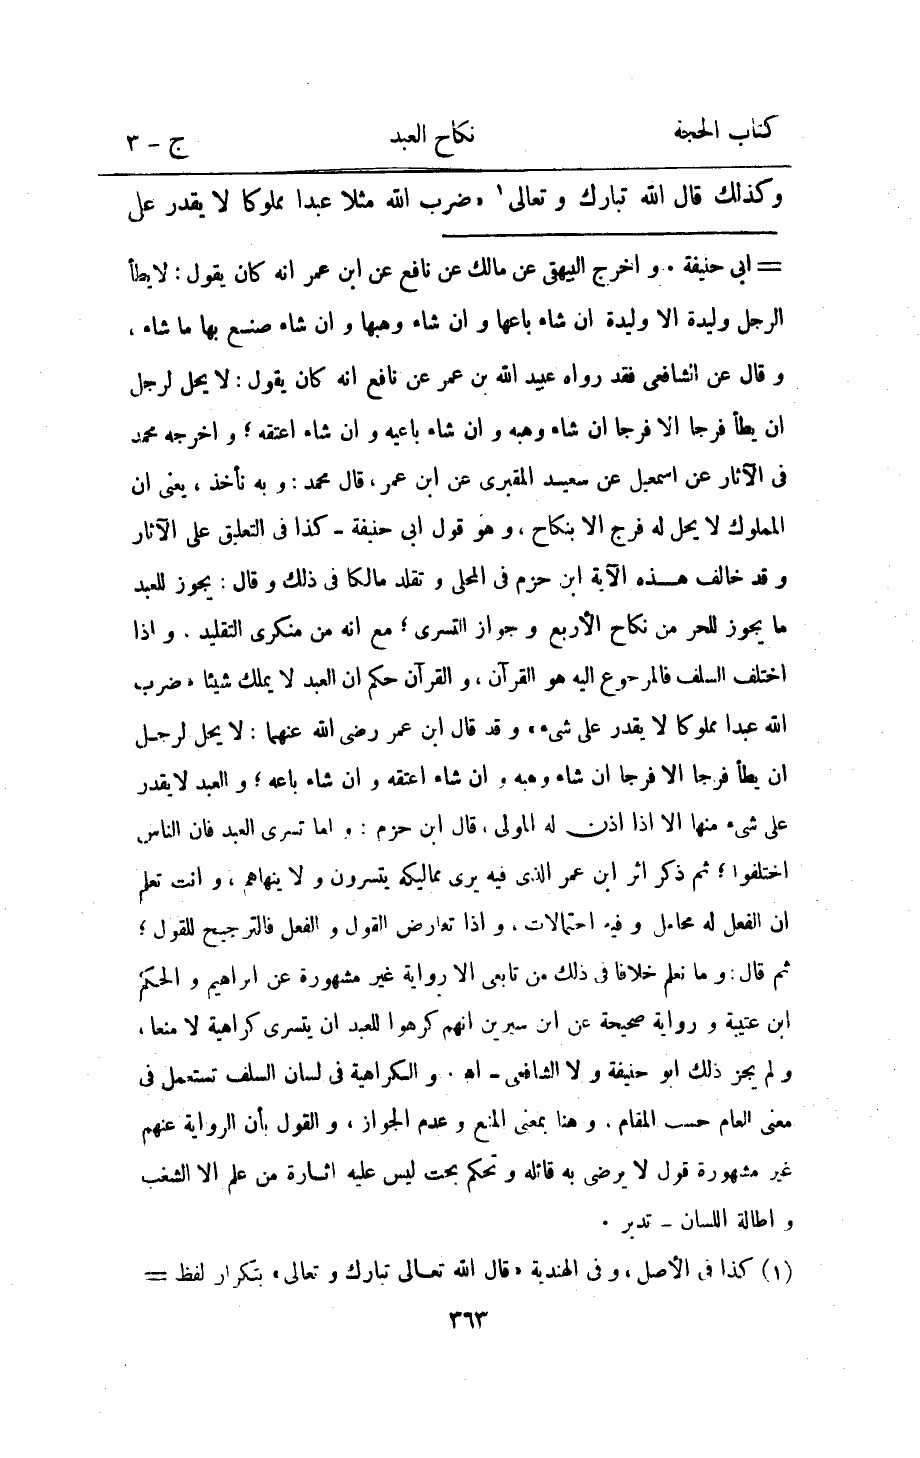 كتاب الحجة نكاح العبد ج - ٣
وكذلك قال الله تبارك و تعالى ١ «ضرب الله مثلا عبدا مملوكا لا يقدر على
= ابى حنيفة . و اخرج البيهقى عن مالك عن نافع عن ابن عمر انه كان يقول : لا يطأ
الرجل وليدة الا وليدة ان شاء باعها و ان شاء وهبها و ان شاء صنع بها ما شاء ،
و قال عن الشافعى فقد رواه عبيد الله بن عمر عن نافع انه كان يقول : لا يحل لرجل
ان يطأ فرجا الا فرجا ان شاء وهبه و ان شاء باعيه و ان شاء اعتقه ؛ و اخرجه محمد
فى الآثار عن اسمعيل عن سعيد المقبرى عن ابن عمر ، قال محمد : و به نأخذ ، يعنى ان
المملوك لا يحل له فرج الا بنكاح ، و هو قول ابى حنيفة - كذا فى التعليق على الآثار
و قد خالف هذه الآية ابن حزم فى المحلى و تقلد مالكا فى ذلك و قال : يجوز للعبد
ما يجوز للحر من نكاح الأربع و جواز التسرى ؛ مع انه من منكرى التقليد . و اذا
اختلف السلف فالمرجوع اليه هو القرآن ، و القرآن حكم ان العبد لا يملك شيئا «ضرب
الله عبدا مملوكا لا يقدر على شىء» و قد قال ابن عمر رضى الله عنهما : لا يحل لرجل
ان يطأ فرجا الا فرجا ان شاء وهبه و ان شاء اعتقه و ان شاء باعه ؛ و العبد لا يقدر
على شىء منها الا اذا اذن له المولى ، قال ابن حزم : و اما تسرى العبد فان الناس
اختلفوا ؛ ثم ذكر اثر ابن عمر الذى فيه يرى مماليكه يتسرون و لا ينهاهم ، و انت تعلم
ان الفعل له محامل و فيه احتمالات ، و اذا تعارض القول و الفعل فالترجيح للقول ؛
ثم قال : و ما نعلم خلافا فى ذلك من تابعى الا رواية غير مشهورة عن ابراهيم و الحكم
ابن عتيبة و رواية صحيحة عن ابن سيرين انهم كرهوا للعبد ان يتسرى كراهية لا منعا ،
و لم يجز ذلك ابو حنيفة و لا الشافعى - اه . و الكراهية فى لسان السلف تستعمل فى
معنى العام حسب المقام . و هنا بمعنى المنع و عدم الجواز ، و القول بأن الرواية عنهم
غير مشهورة قول لا يرضى به قائله و تحكم بحت ليس عليه اثارة من علم الا الشغب
و اطالة اللسان - تدبر .
(١) كذا فى الأصل ، و فى الهندية «قال الله تعالى تبارك و تعالى» بتكرار لفظ =
٣٦٣